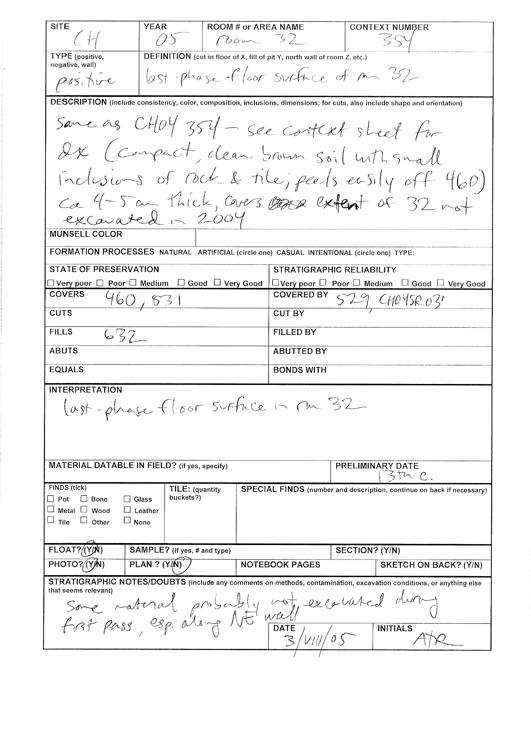 SITE YEAR ROOM # or AREA NAME CONTEXT NUMBER
CH 05 room 32 354
TYPE (positive, negative, wall) DEFINITION (cut in floor of X, fill of pit Y, north wall of room Z, etc.)
positive last-phase floor surface of rm 32
DESCRIPTION (include consistency, color, composition, inclusions, dimensions; for cuts, also include shape and orientation)
Same as CH04 354 - see context sheet for
(compact, clean brown soil with small
inclusions of rock & tile; peels easily off 460)
ca 4-5 cm thick, covers extent of 32 not
excavated in 2004
MUNSELL COLOR
FORMATION PROCESSES NATURAL ARTIFICIAL (circle one) CASUAL INTENTIONAL (circle one) TYPE:
STATE OF PRESERVATION STRATIGRAPHIC RELIABILITY
Very poor Poor Medium Good Very Good Very poor Poor Medium Good Very Good
COVERS 460, 531 COVERED BY 529, CH04SR03
CUTS CUT BY
FILLS 632 FILLED BY
ABUTS ABUTTED BY
EQUALS BONDS WITH
INTERPRETATION
last-phase floor surface in rm 32
MATERIAL DATABLE IN FIELD? (if yes, specify) PRELIMINARY DATE
13th c.
FINDS (tick) TILE: (quantity buckets?) SPECIAL FINDS (number and description, continue on back if necessary)
Pot Bone Glass
Metal Wood Leather
Tile Other None
FLOAT? (Y/N) SAMPLE? (if yes, # and type) SECTION? (Y/N)
PHOTO? (Y/N) PLAN ? (Y/N) NOTEBOOK PAGES SKETCH ON BACK? (Y/N)
STRATIGRAPHIC NOTES/DOUBTS (include any comments on methods, contamination, excavation conditions, or anything else
that seems relevant)
Some material probably not excavated during
first pass, esp. along NE wall
DATE INITIALS
3/VIII/05 ATR